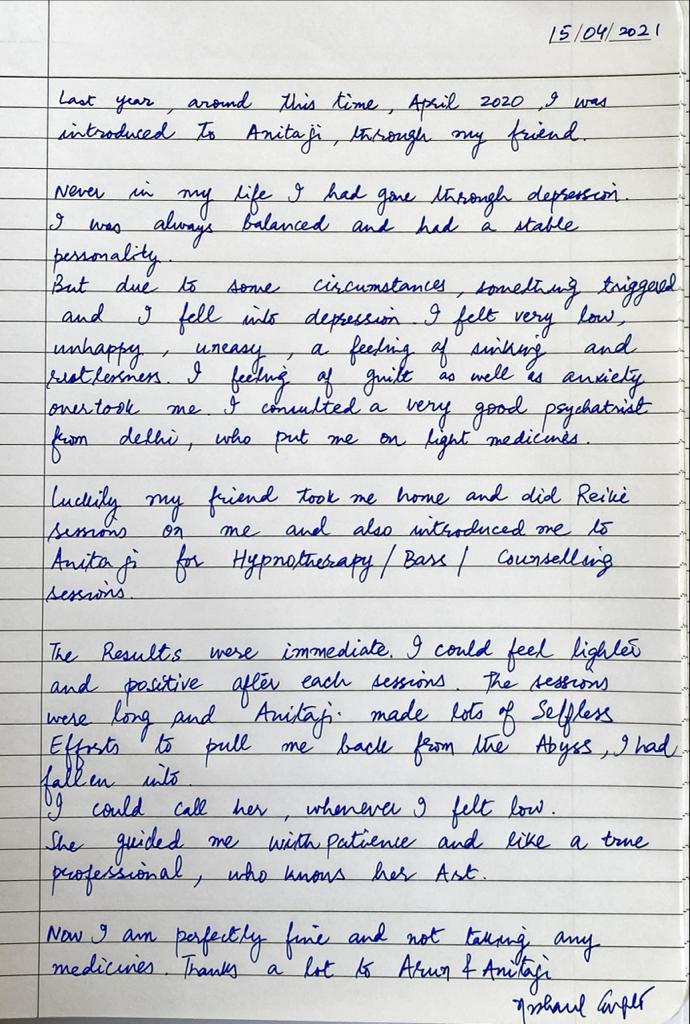 15/04/2021
Last year, around this time, April 2020, I was
introduced to Anitaji, through my friend.
Never in my life I had gone through depression.
I was always balanced and had a stable
personality.
But due to some circumstances, something triggered
and I fell into depression. I felt very low,
unhappy, uneasy, a feeling of sinking and
restlessness. I feeling of guilt as well as anxiety
overtook me. I consulted a very good psychatrist
from delhi, who put me on light medicines.
Luckily my friend took me home and did Reiki
sessions on me and also introduced me to
Anitaji for Hypnotherapy/Bars/ Counselling
sessions.
The Results were immediate. I could feel lighter
and positive after each sessions. The sessions
were long and Anitaji. made lots of Selfless
Efforts to pull me back from the Abyss, I had
fallen into.
I could call her, whenever I felt low.
She guided me with patience and like a true
professional, who knows her Art.
Now I am perfectly fine and not taking any
medicines. Thanks a lot to Arun & Anitaji